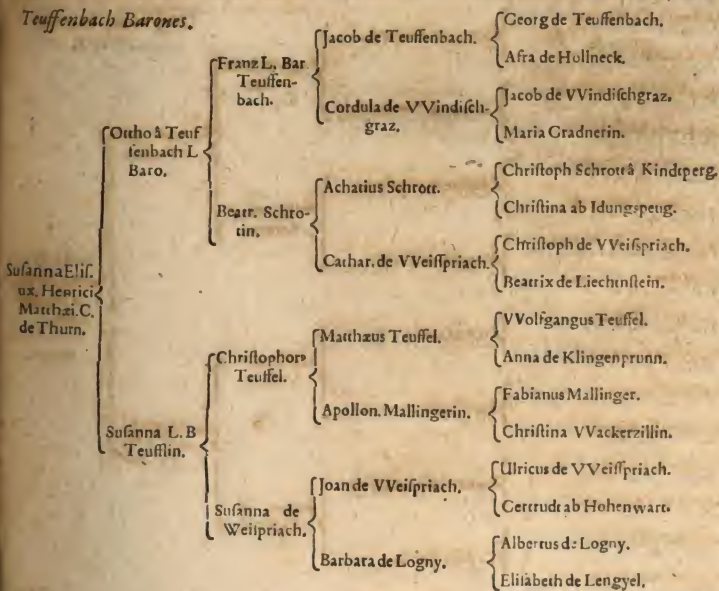 Teuffenbach Barones.
Susanna Elis.
ux. Henrici
Matthæi. C.
de Thurn.
Ottho â Teuf
fenbach L
Baro.
Susanna L. B
Teufflin.
Franz L. Bar
Teuffen-
bach.
Beatr. Schro-
tin.
Christophor⁹
Teuffel.
Susanna de
Weispriach.
Jacob de Teuffenbach.
Cordula de VVindisch-
graz.
Achatius Schrott.
Cathar. de VVeisspriach.
Matthæus Teuffel.
Apollon. Mallingerin.
Joan de VVeispriach.
Barbara de Logny.
Georg de Teuffenbach.
Afra de Hollneck.
Jacob de VVindischgraz.
Maria Gradnerin.
Christoph Schrott â Kindtperg.
Christina ab Idungspeug.
Christoph de VVeisspriach.
Beatrix de Liechtnstein.
VVolfgangus Teuffel.
Anna de Klingenprunn.
Fabianus Mallinger.
Christina VVackerzillin.
Ulricus de VVeisspriach.
Gertrudt ab Hohenwart.
Albertus de Logny.
Elisabeth de Lengyel.